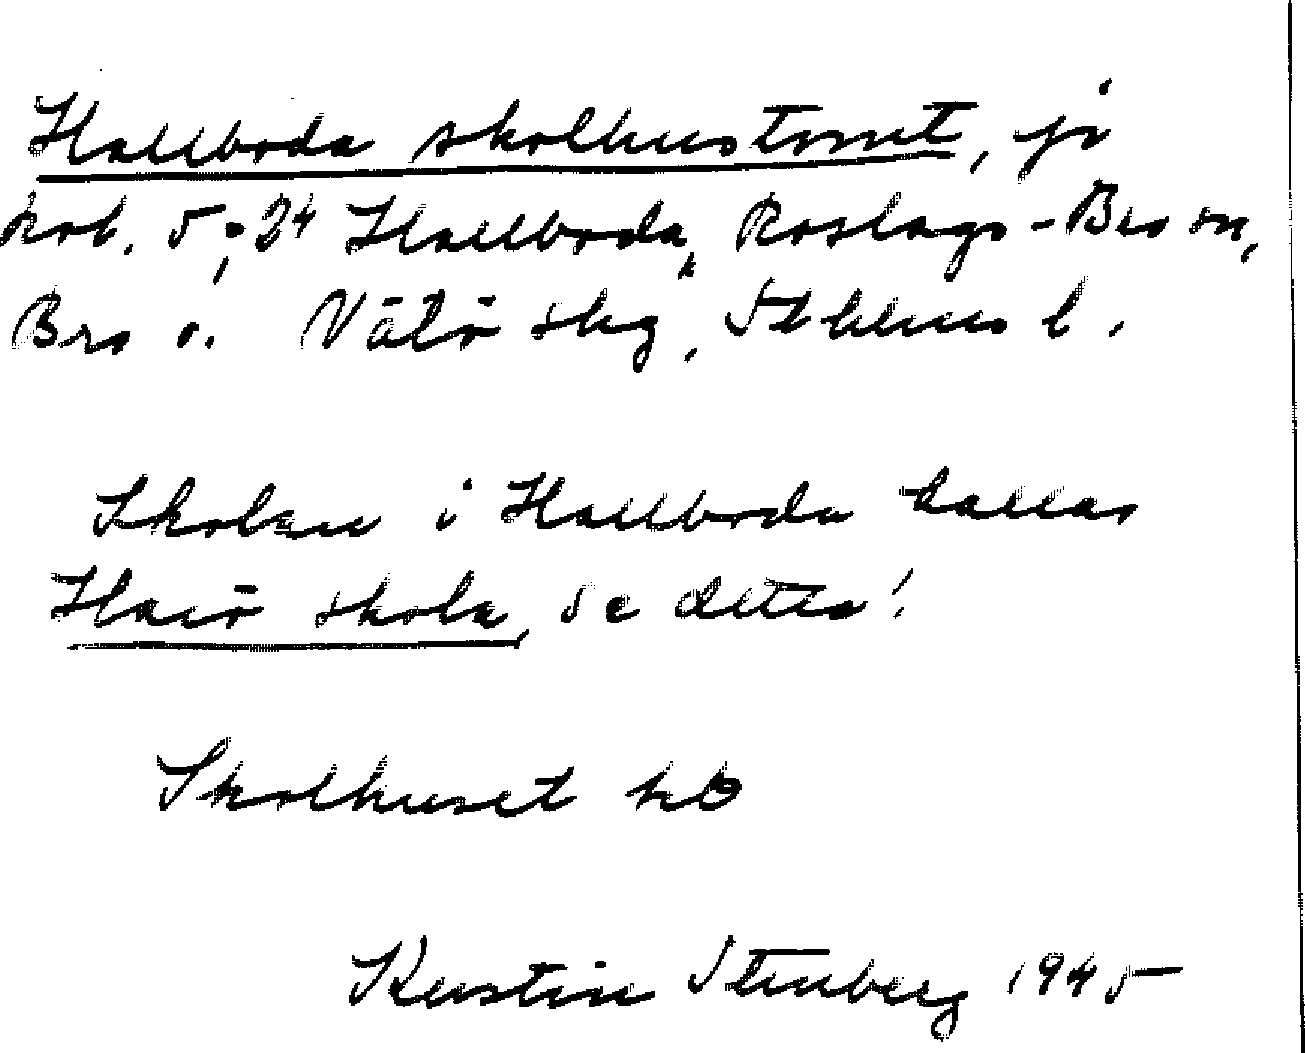 Hallboda skolhustomt, jr
kob. 5:24 Hallboda, Roslags-Bro sn,
Bro o. Vätö skg, Sthlms l.
Skolan i Hallboda kallas
skola, se detta!
Skolhuset kb
Kerstin Stenberg 1945